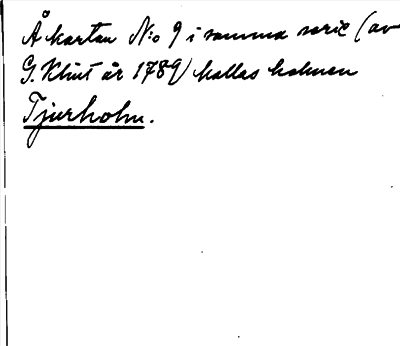 Å kartan N:o 9 i samma serie (av
G. Klint år 1789) kallas holmen
Tjurholm.